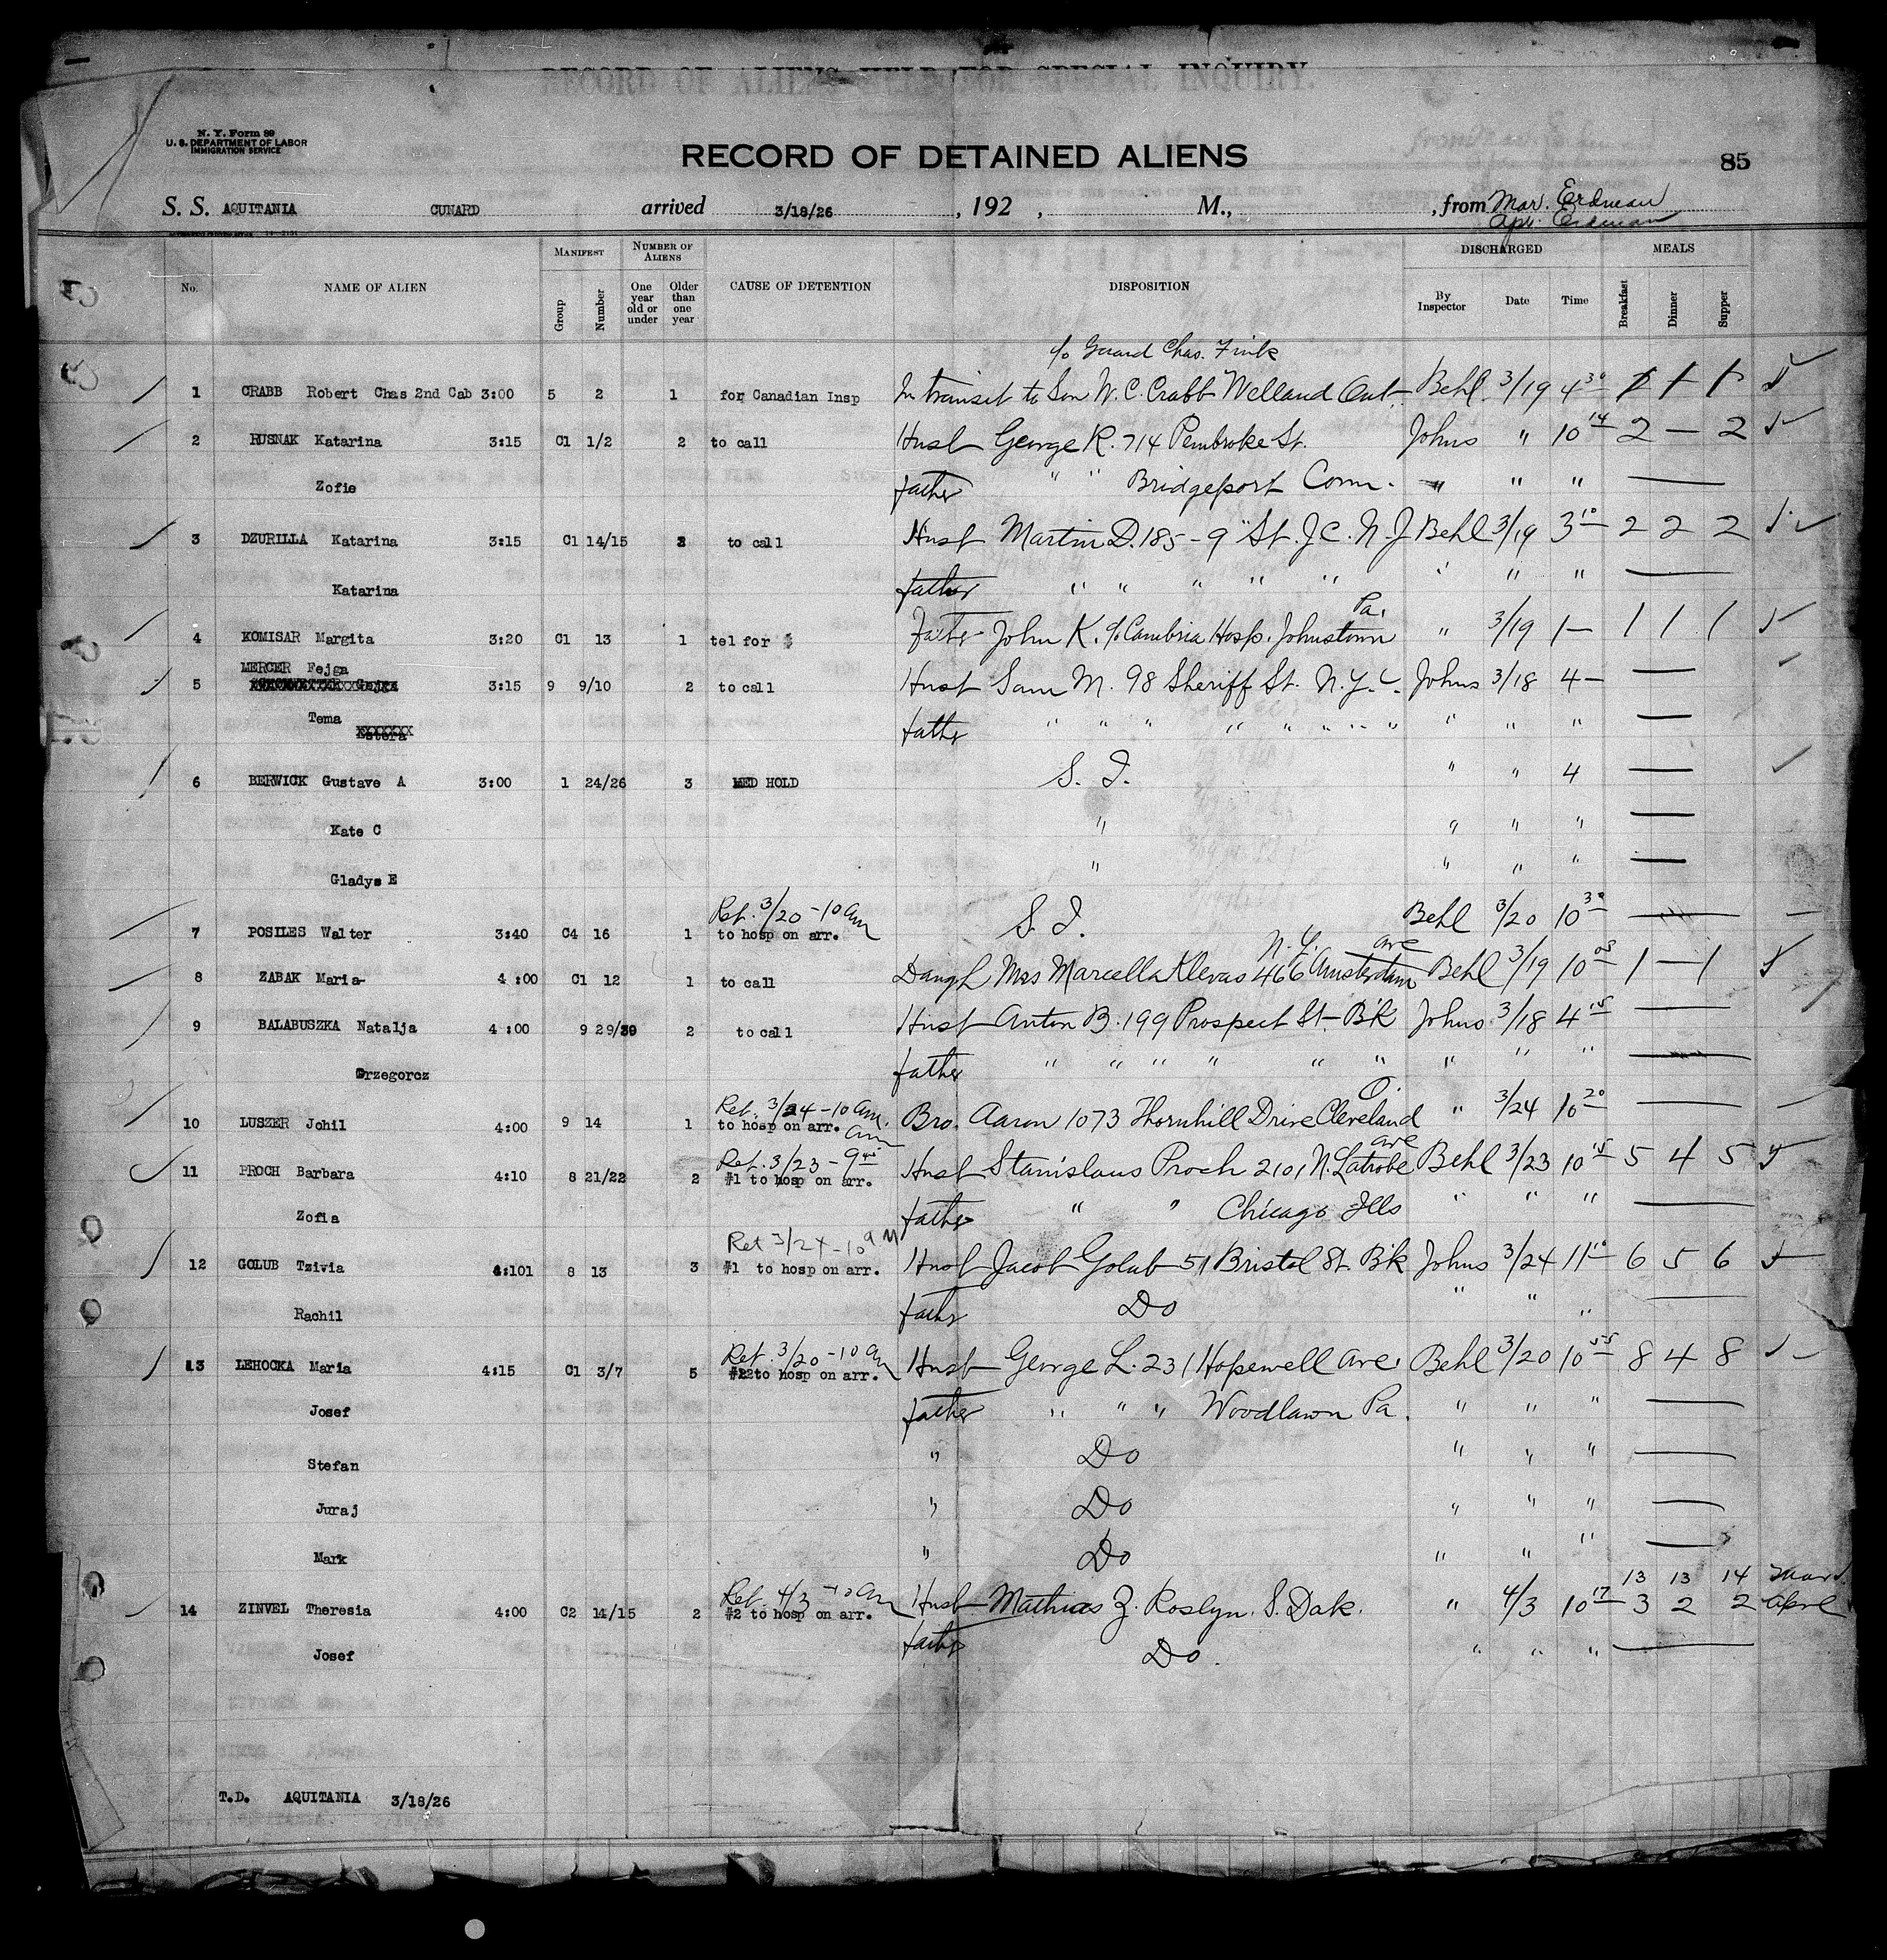 RECORD OF ALIENS HELD FOR SPECIAL INQUIRY.
N. Y. Form 89
U. S. DEPARTMENT OF LABOR
IMMIGRATION SERVICE
RECORD OF DETAINED ALIENS
85
S. S. AQUITANIA CUNARD arrived 3/18/26, 192 , M., , from Mar. Erdman
Apr. Erdman
No. NAME OF ALIEN MANIFEST Group Number NUMBER OF ALIENS One year old or under Older than one year CAUSE OF DETENTION DISPOSITION DISCHARGED By Inspector Date Time MEALS Breakfast Dinner Supper
c/o Guard Chas. Fink
1 CRABB Robert Chas 2nd Cab 3:00 5 2 1 for Canadian Insp In transit to Son W. C. Crabb Welland Ont. Behl 3/19 4 30 1 1 1
2 RUSNAK Katarina 3:15 C1 1/2 2 to call Husb George R. 714 Pembroke St. Johns " 10 14 2 — 2
Zofie father " " Bridgeport Conn. " " "
3 DZURILLA Katarina 3:15 C1 14/15 2 to call Husb Martin D. 185 - 9" St. J C. N J Behl 3/19 3 10 2 2 2
Katarina father " " " " " " " "
Pa.
4 KOMISAR Margita 3:20 C1 13 1 tel for $ Father John K. c/o Cambria Hosp. Johnstown " 3/19 1— 1 1 1
MERCER Fejga
5 3:15 9 9/10 2 to call Husb Sam M. 98 Sheriff St. N. Y. C. Johns 3/18 4—
Tema father " " " " " " " " " " "
6 BERWICK Gustave A 3:00 1 24/26 3 MED HOLD S. I. " " 4
Kate C " " " "
Gladys E " " " "
Ret. 3/20 - 10 am
7 POSILES Walter 3:40 C4 16 1 to hosp on arr. S. I. Behl 3/20 10 30
N. Y. ave
8 ZABAK Maria 4:00 C1 12 1 to call Daugh Mrs Marcella Klevas 466 Amsterdam Behl 3/19 10 03 1 — 1
9 BALABUSZKA Natalja 4:00 9 29/30 2 to call Husb Anton B. 199 Prospect St. B'k Johns 3/18 4 15
Grzegorcz father " " " " " " " " "
Ret. 3/24 - 10 am. O.
10 LUSZER Johil 4:00 9 14 1 to hosp on arr. Bro. Aaron 1073 Thornhill Drive Cleveland " 3/24 10 20
Ret. 3/23 - 9 45 am ave
11 PROCH Barbara 4:10 8 21/22 2 #1 to hosp on arr. Husb Stanislaus Proch 2101 N. Latrobe Behl 3/23 10 15 5 4 5
Zofia father " " Chicago Ills " " "
Ret 3/24 - 10 a M
12 GOLUB Tzivia 4:101 8 13 3 #1 to hosp on arr. Husb Jacob Golub 51 Bristol St. B'k Johns 3/24 11 10 6 5 6
Rachil father Do " " "
Ret. 3/20 - 10 am
13 LEHOCKA Maria 4:15 C1 3/7 5 #2 to hosp on arr. Husb George L. 231 Hopewell Ave. Behl 3/20 10 55 8 4 8
Josef father " " " Woodlawn Pa. " " "
Stefan " Do " " "
Juraj " Do " " "
Mark " Do " " "
Ret. 4/3 - 10 am 13 13 14 Mar.
14 ZINVEL Theresia 4:00 C2 14/15 2 #2 to hosp on arr. Husb Mathias Z. Roslyn. S. Dak. " 4/3 10 17 3 2 2 April
Josef father Do. " " "
T.D. AQUITANIA 3/18/26